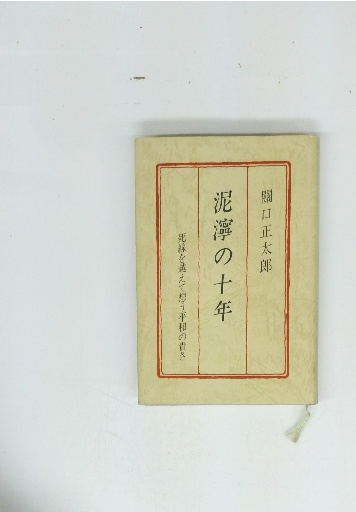 關口正太郎
泥濘の十年
死線を越えて想う平和の貴さ